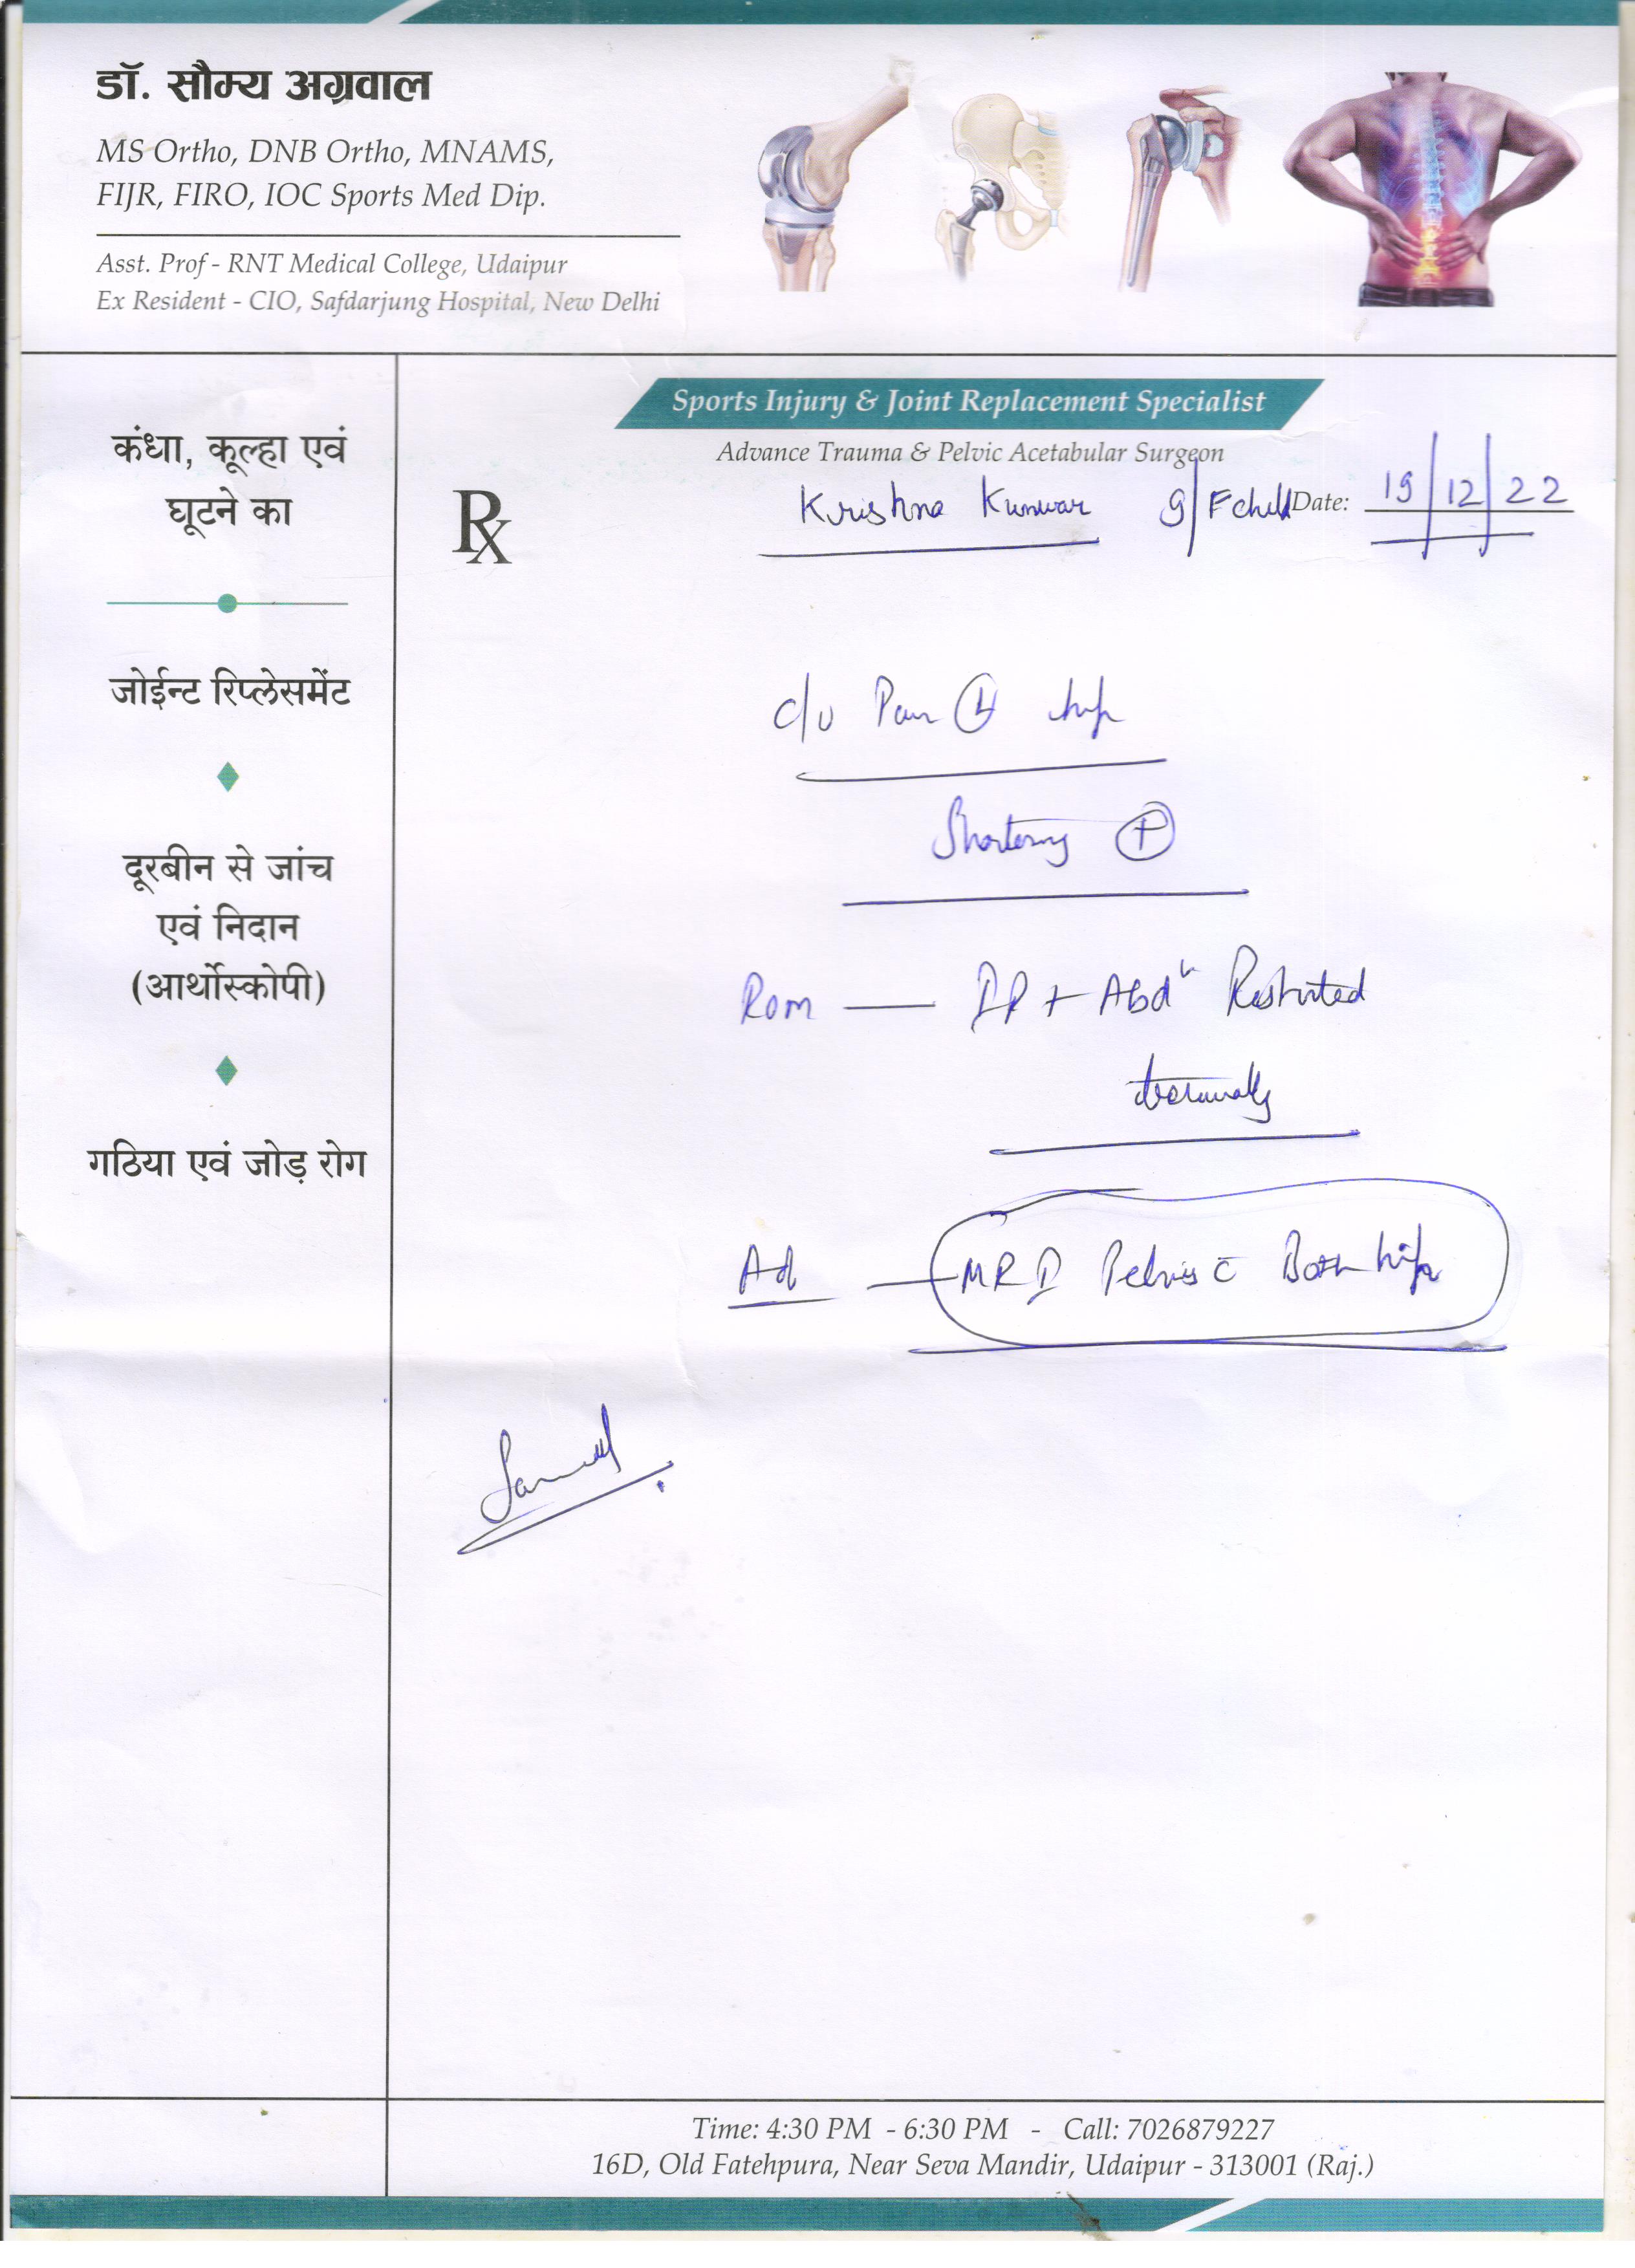 डॉ. सौम्य अग्रवाल
MS Ortho, DNB Ortho, MNAMS,
FIJR, FIRO, IOC Sports Med Dip.
Asst. Prof - RNT Medical College, Udaipur
Ex Resident - CIO, Safdarjung Hospital, New Delhi
कंधा, कूल्हा एवं
घूटने का
जोईन्ट रिप्लेसमेंट
दूरबीन से जांच
एवं निदान
(आर्थोस्कोपी)
गठिया एवं जोड़ रोग
Sports Injury & Joint Replacement Specialist
Advance Trauma & Pelvic Acetabular Surgeon
Rx Krishna Kunwar 9/F child Date: 19/12/22
c/o Pain L hip
Shortening +
ROM — IR + Abdn Restricted
terminally
Ad — MRI Pelvis c Both hip
Time: 4:30 PM - 6:30 PM - Call: 7026879227
16D, Old Fatehpura, Near Seva Mandir, Udaipur - 313001 (Raj.)